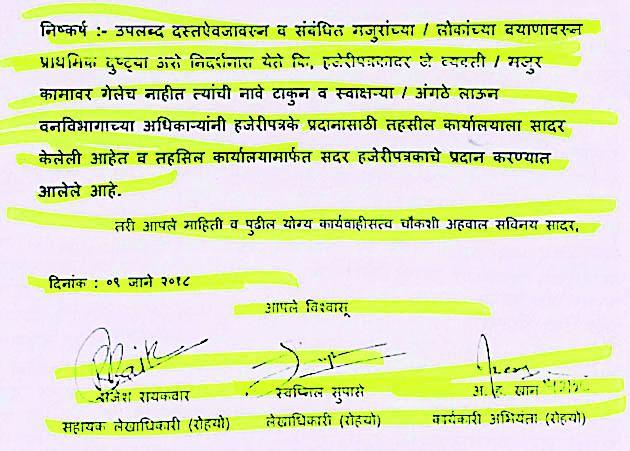 निष्कर्ष :- उपलब्द दस्तऐवजावरुन व संबंधित मजुरांच्या / लोकांच्या बयाणावरुन
प्राथमिक दृष्ट्या असे निदर्शनास येते कि, हजेरीपत्रकावर जे व्यक्ती / मजुर
कामावर गेलेच नाहीत त्यांची नावे टाकुन व स्वाक्षऱ्या / अंगठे लाऊन
वनविभागाच्या अधिकाऱ्यांनी हजेरीपत्रके प्रदानासाठी तहसील कार्यालयाला सादर
केलेली आहेत व तहसिल कार्यालयामार्फत सदर हजेरीपत्रकाचे प्रदान करण्यात
आलेले आहे.
तरी आपले माहिती व पुढील योग्य कार्यवाहीसत्व चौकशी अहवाल सविनय सादर.
दिनांक : ०९ जाने २०१८
आपले विश्वासू
राजेश रायकवार स्वप्निल सुपासे अ. ह. खान
सहायक लेखाधिकारी (रोहयो) लेखाधिकारी (रोहयो) कार्यकारी अभियंता (रोहयो)